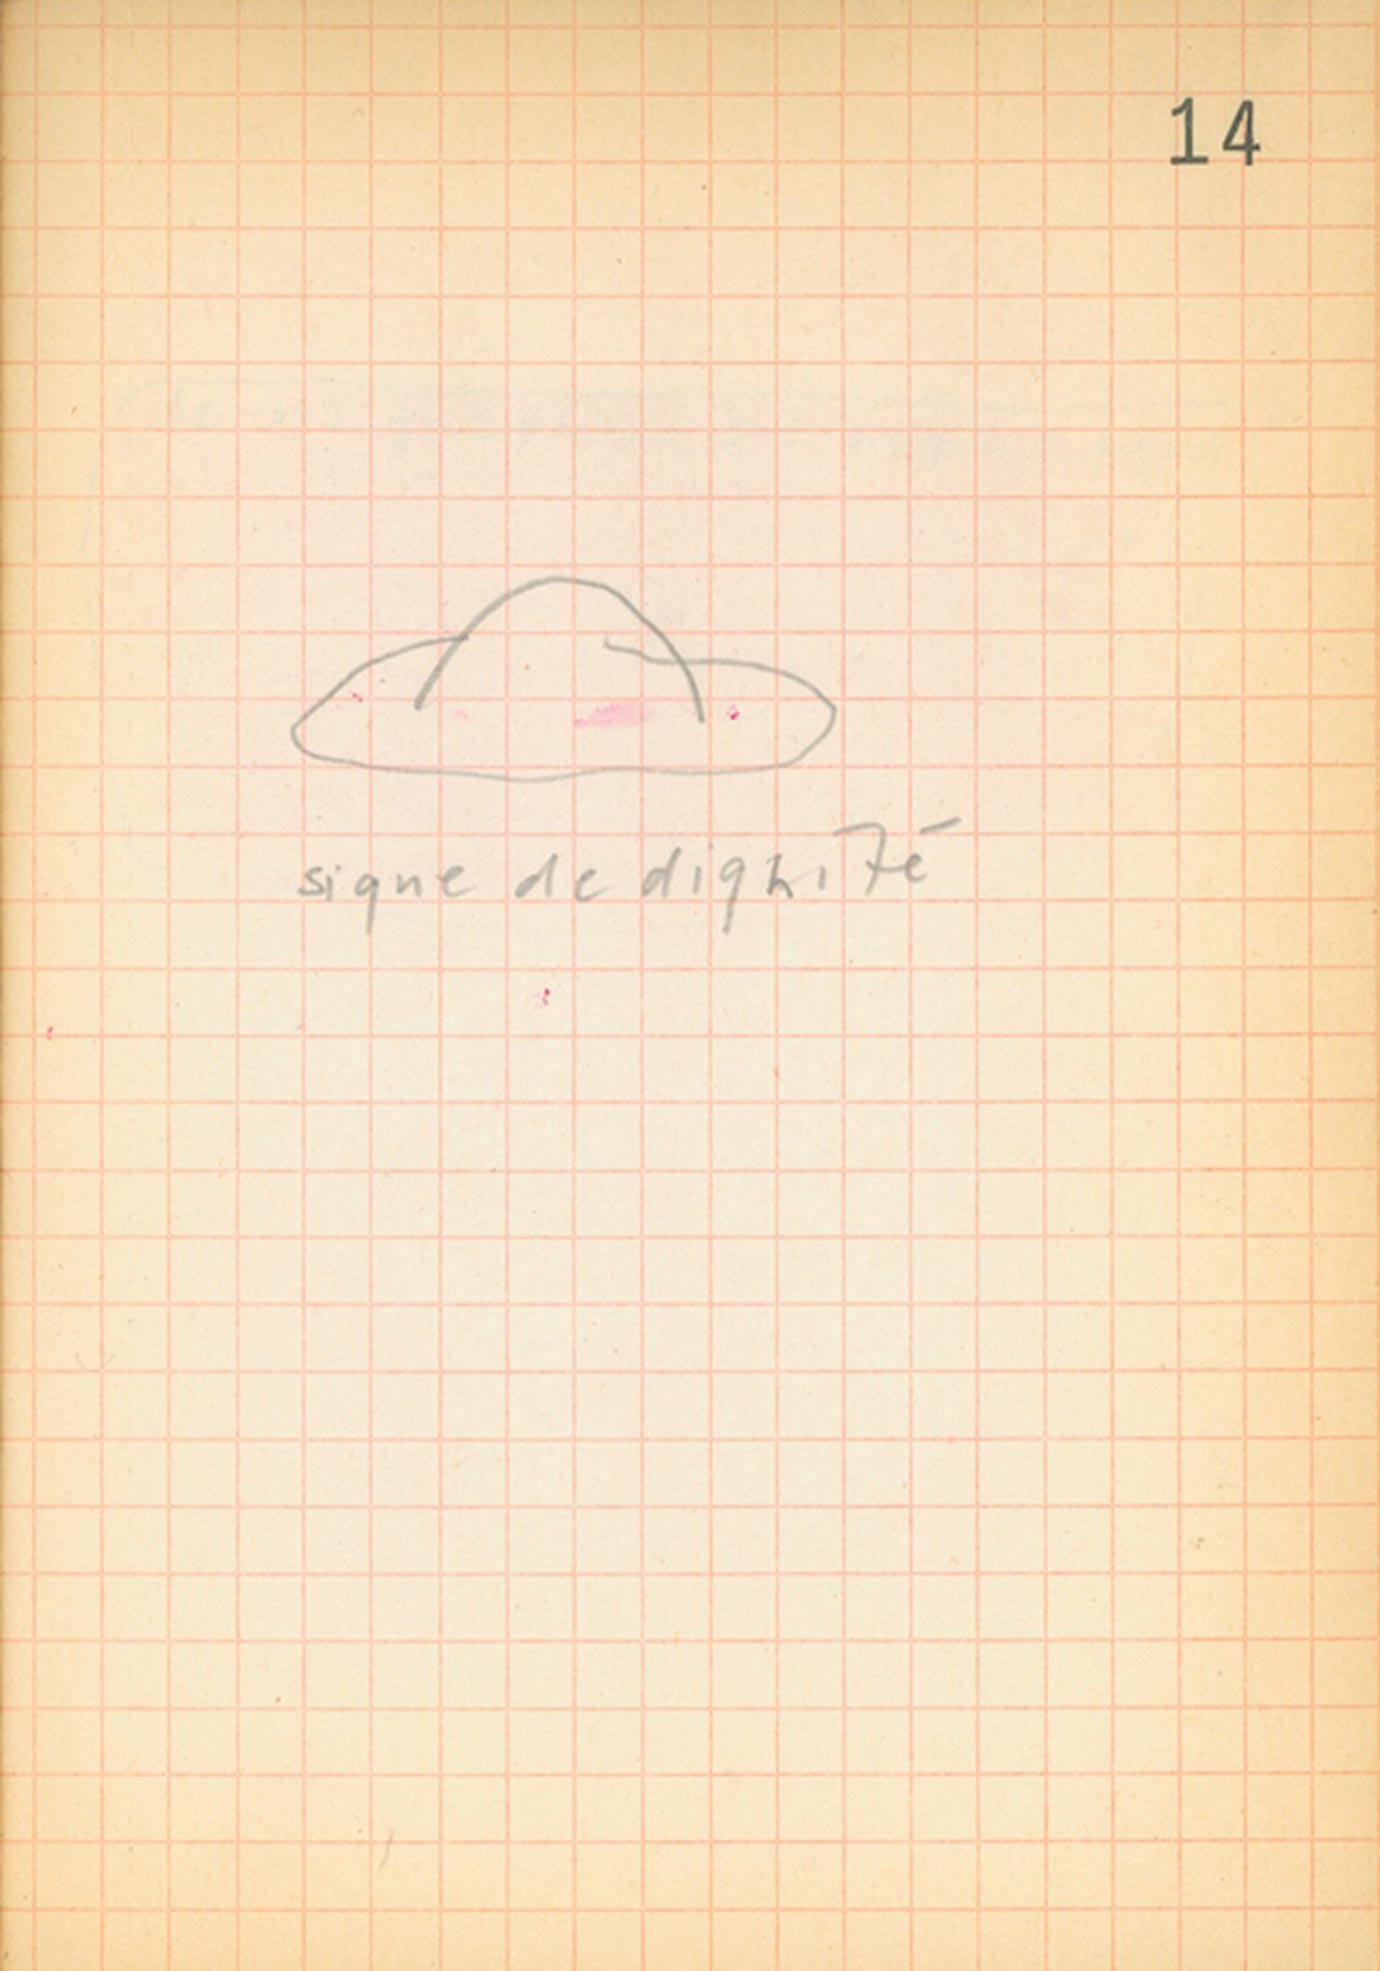 14
signe de dignité